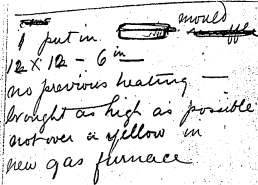 I put in mould
12 X 12 - 6 in
no previous heating -
brought as high as possible
not over a yellow in
new gas furnace